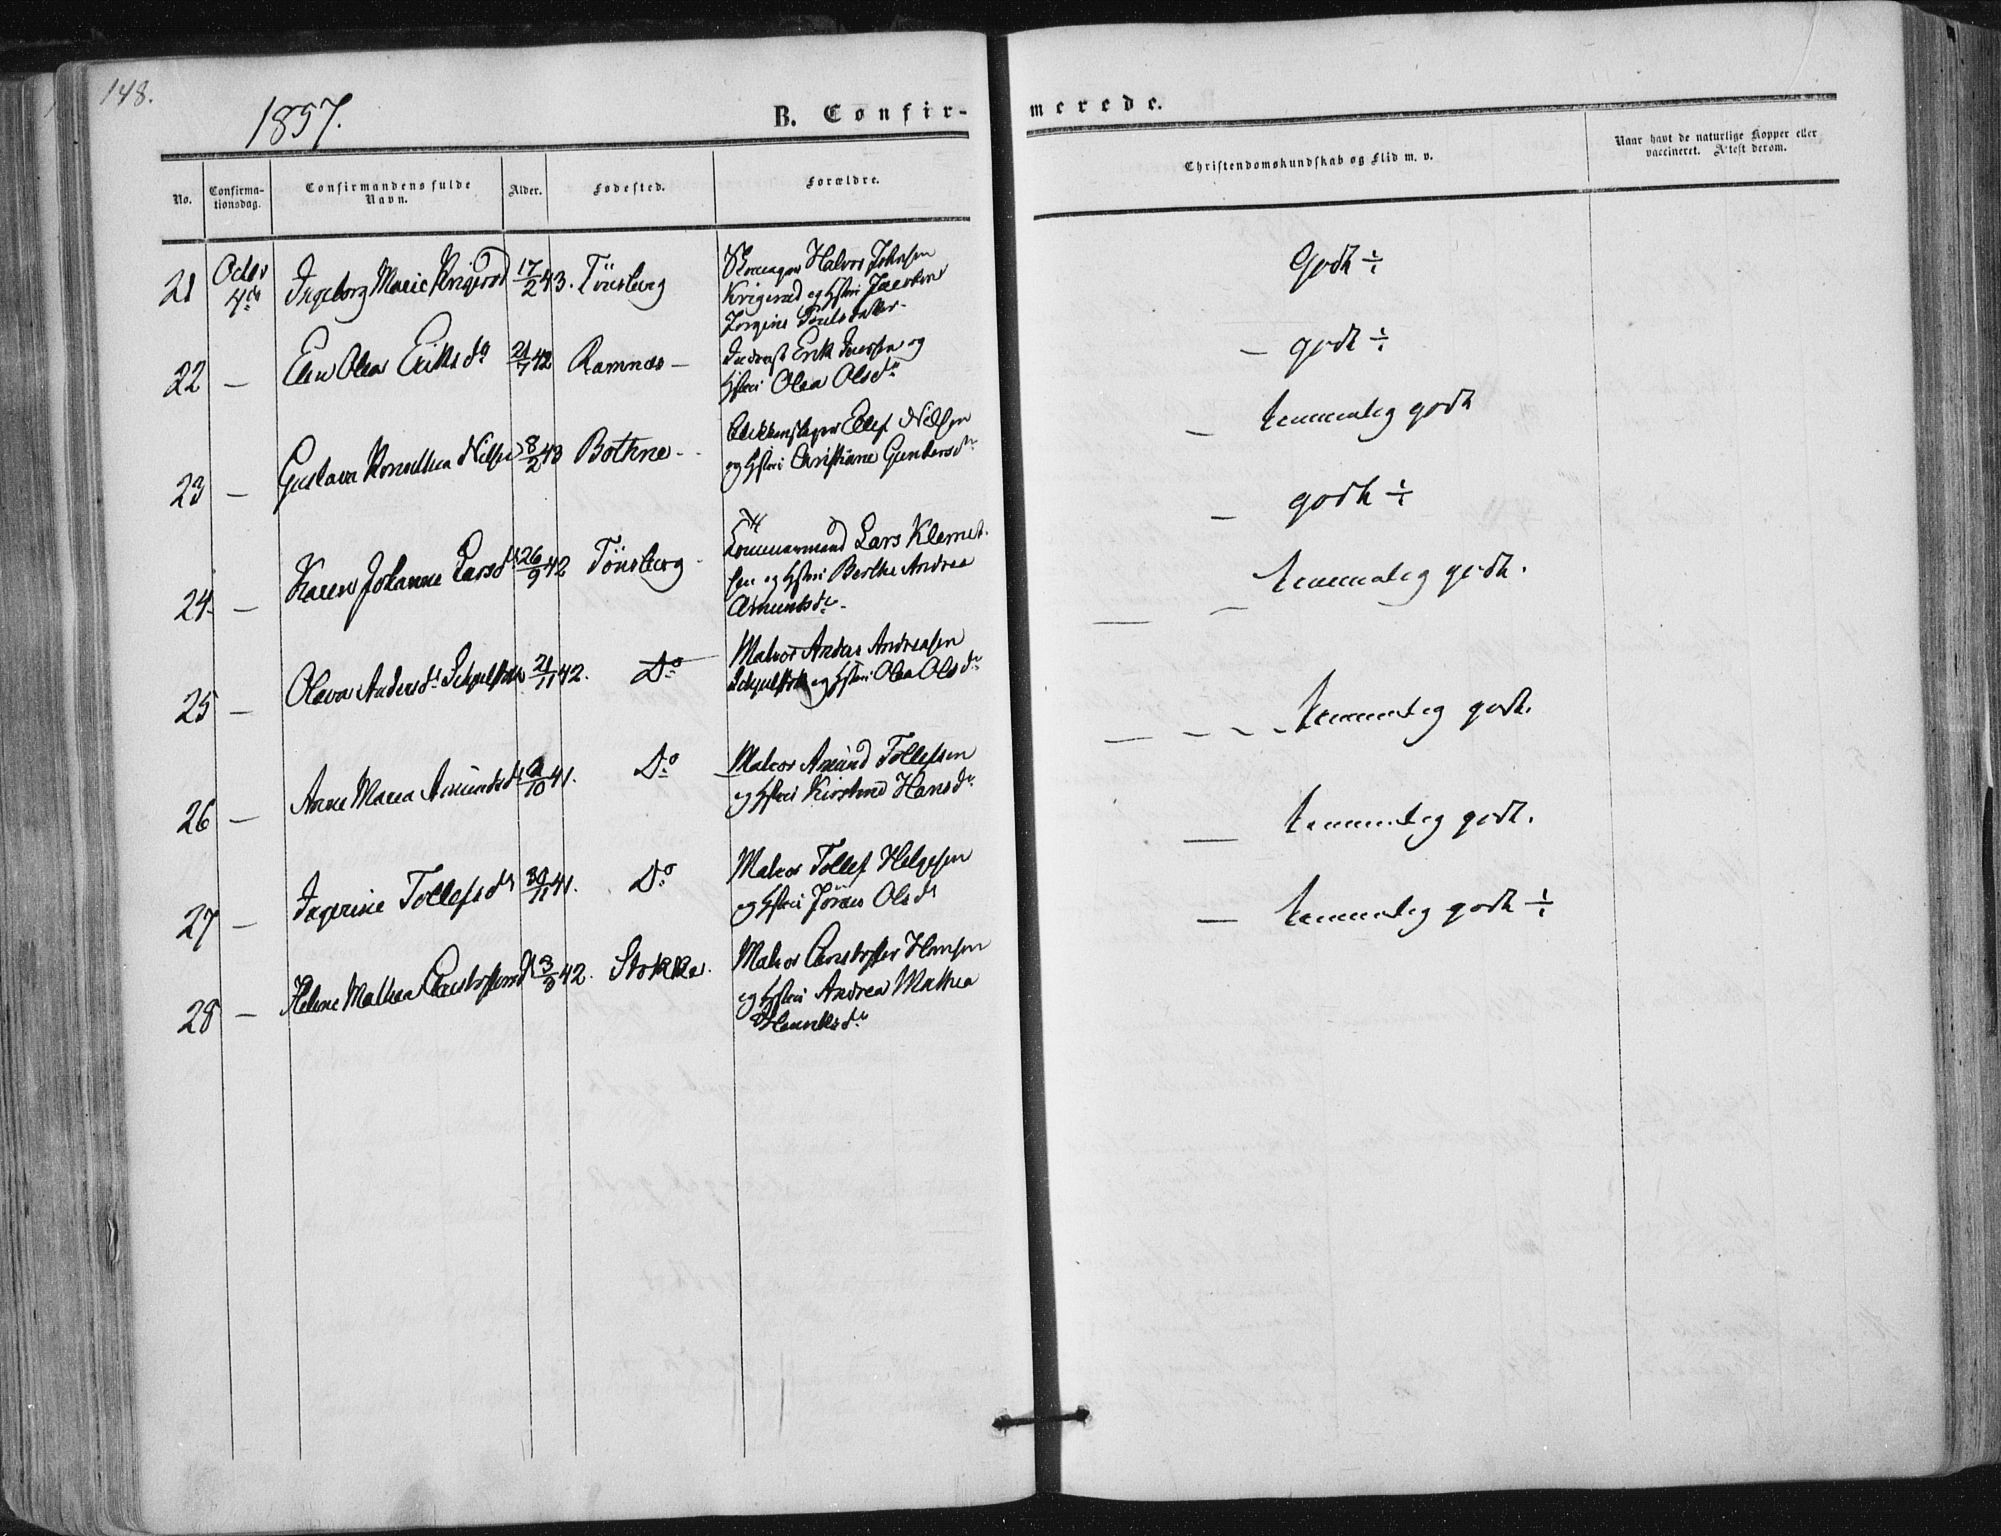 148.
1857.
B. Confir-
merede.
No.
Confirma-
tionsdag.
Confirmandens fulde
Navn.
Alder.
Fødested.
Forældre.
Christendomskundskab og Flid m. v.
Naar havt de naturlige Kopper eller
vaccineret. Attest derom.
21 Octbr 4de Ingeborg Marie Krigerod 17/2 43. Tönsberg
Halvor Johnsen
Krigerod og Hstru
Jörgine
Godt ÷
22 — Elen Olea Eriksdr 21/7 42 Ramnæs —
Erik og
Hstru Olea Olsdr
— godt ÷
23 — Gustava Nilsen 8/2 43 Bothne -
Blikkenslager Ellef Nilsen
og Hstru Christiane Gundersdr
— temmelig godt
24. — Karen Johanne Larsdr 26/9 42 Tönsberg -
Tömmermand Lars Klemet-
sen og Hstru Berthe Andrea
Amundsdr -
— godt ÷
25 — Oleva Andersdr 21/11 42. Do
Matros Anders Andreasen
og Hstru Olea Olsdr
— — temmelig godt.
26 — Anne Maria Amundsdr /10 41. Do
Matros Amund Tollefsen
og Hstru Kirstine Hansdr
— - - - temmelig godt.
27 — Ingerine Tollefsdr 30/11 41. Do
Matros Tollef Helgesen
og Hstru Jöran Olsdr
— temmelig godt.
28 — Helene Mathea Christoffersdr 3/3 42. Stokke.
Matros Christoffer Hansen
og Hstru Andrea Mathea
— temmelig godt ÷